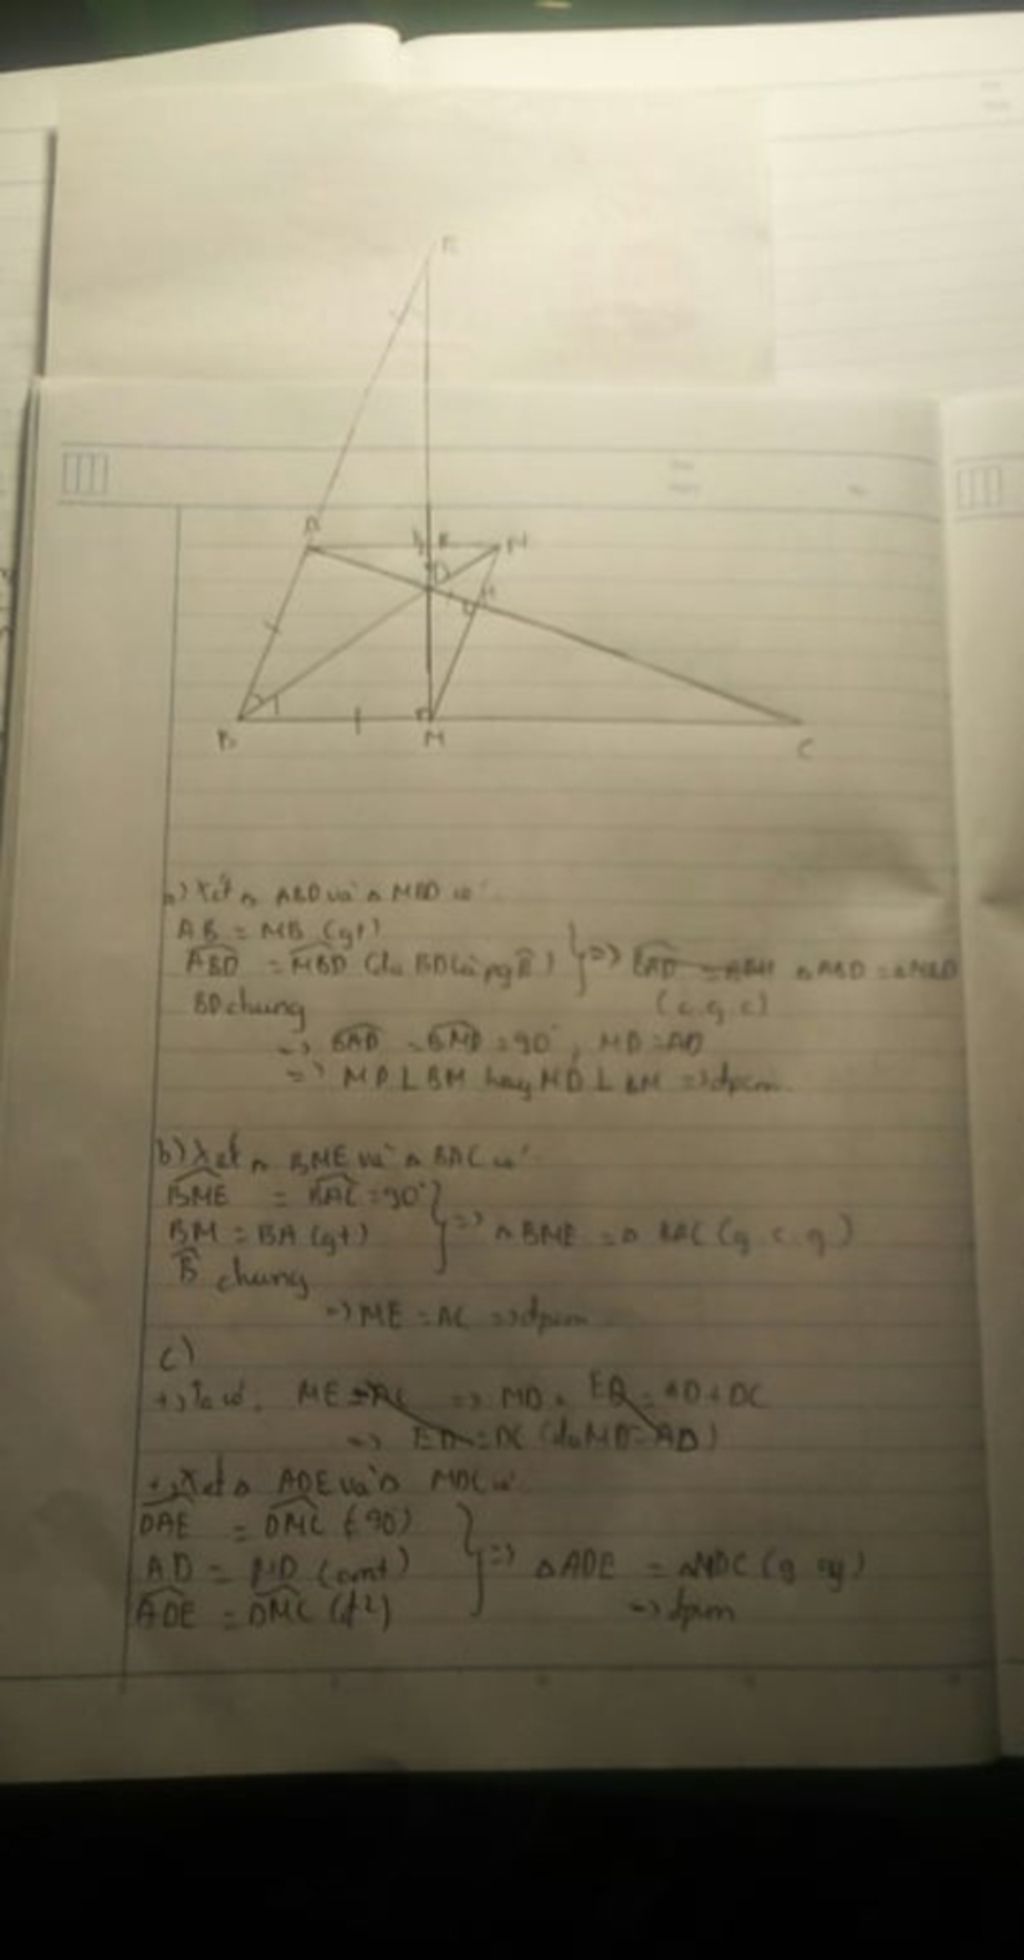 E
A
K
N
D
H
B
M
C
a) Xét △ ABD và △ MBD có
AB = MB (gt)
ABD = MBD (do BD là pg B) } => BAD = ABM △ABD = △MBD
BD chung (c.g.c)
=> BAD = BMD = 90°, MD = AD
=> MD ⊥ BM hay MD ⊥ BM => đpcm.
b) Xét △ BME và △ BAC có
BME = BAC = 90°
BM = BA (gt) } => △ BME = △ BAC (g.c.g)
B chung
=> ME = AC => đpcm
c)
+, Ta có. ME = AC => MD + ED = AD + DC
=> ED = DC (do MD = AD)
+, Xét △ ADE và △ MDC có
DAE = DMC (90)
AD = MD (cmt) } => △ADE = △MDC (g.c.g)
ADE = DMC (đ²) => đpcm